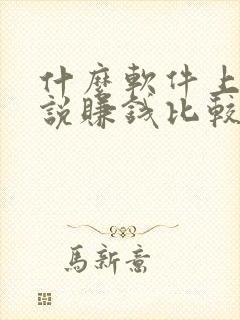 什麼軟件上
說賺錢比較
馬新意